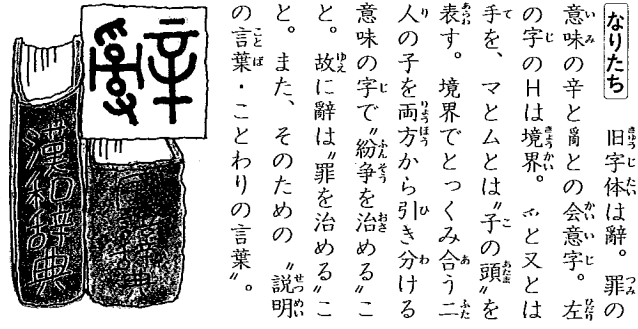 なりたち
旧字体は辭。罪の
意味の辛と𤔔との会意字。左
の字のHは境界。爫と又とは
手を、マとムとは〝子の頭〟を
表す。境界でとっくみ合う二
人の子を両方から引き分ける
意味の字で〝紛争を治める〟こ
と。故に辭は〝罪を治める〟こ
と。また、そのための〝説明
の言葉・ことわりの言葉〟。
漢和辞典
辞典